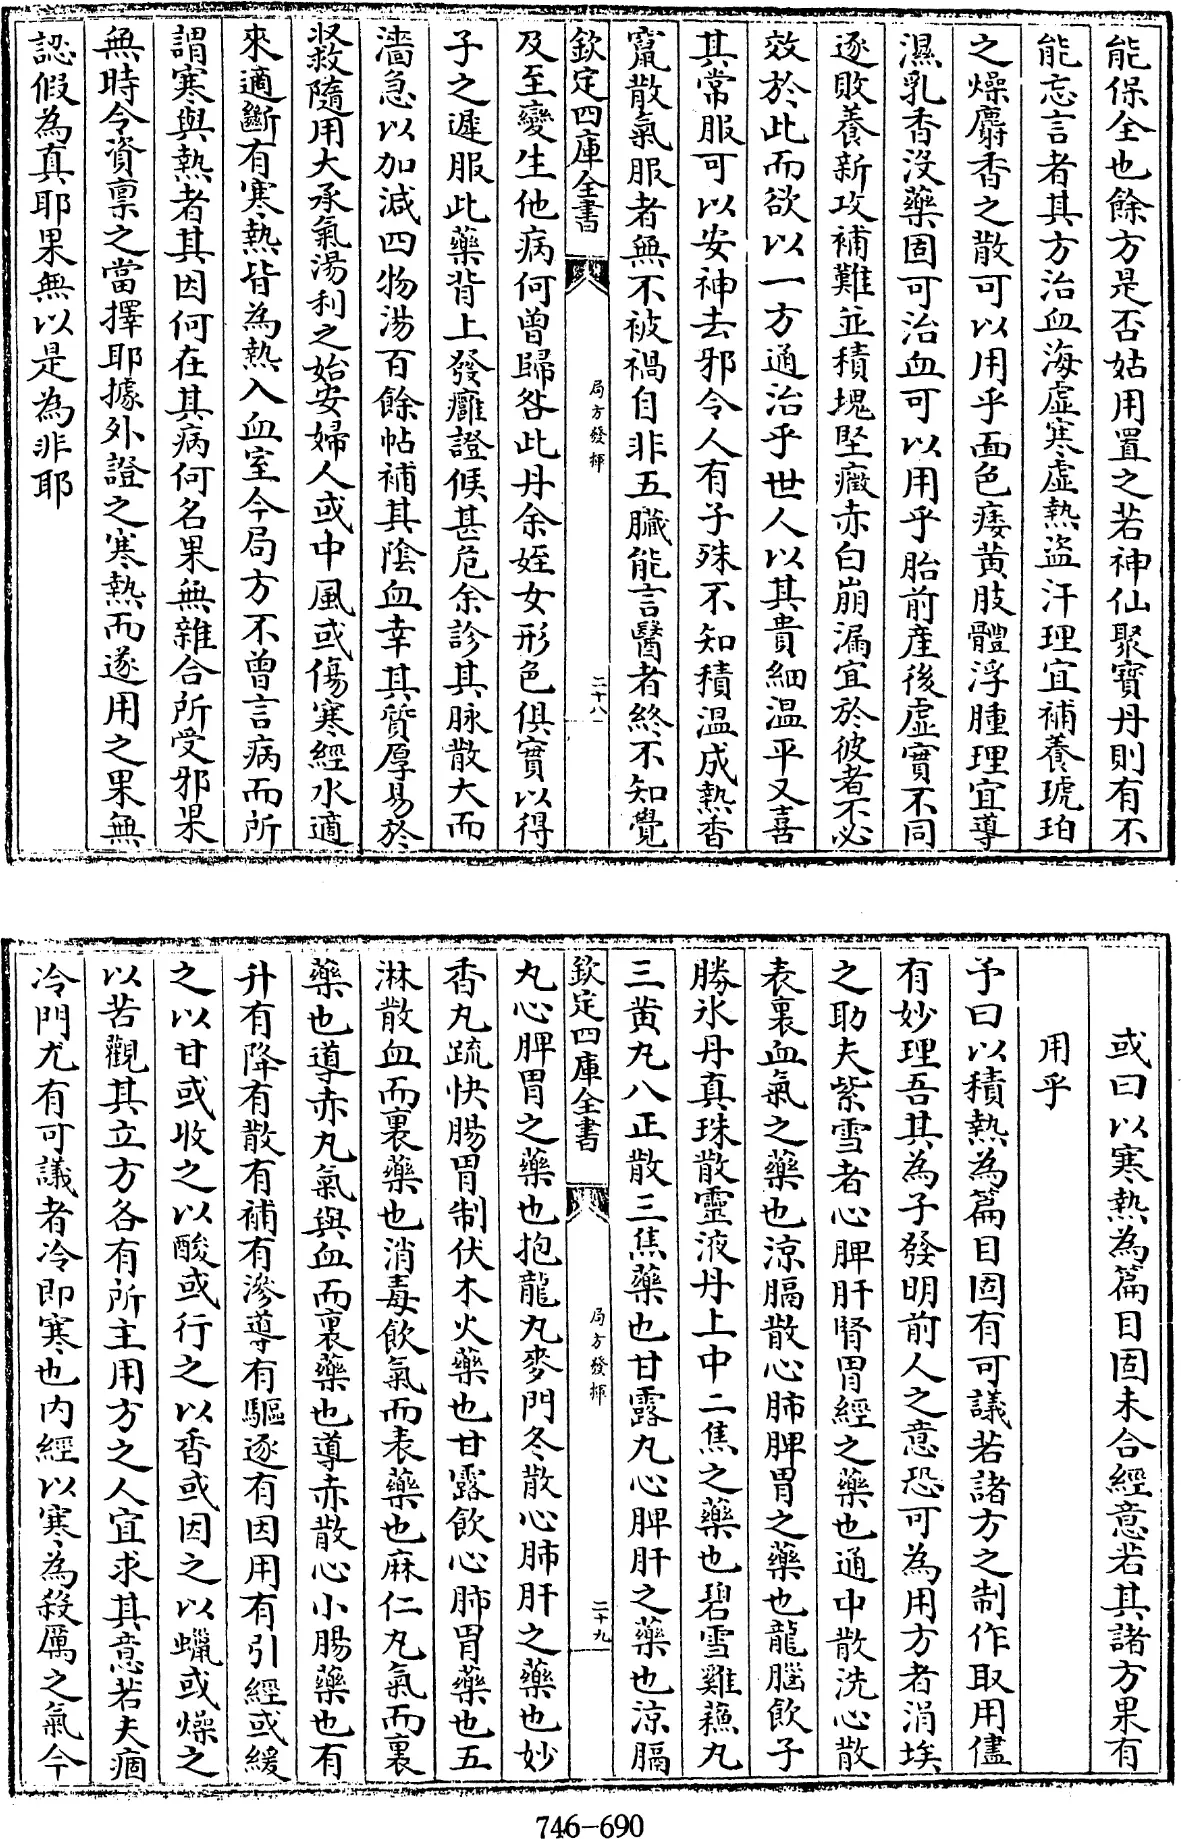 能保全也餘方是否姑用置之若神仙聚寳丹則有不
能忘言者其方治血海虛寒虛熱盜汗理宜補養琥珀
之燥麝香之散可以用乎面色痿黄肢體浮腫理宜導
濕乳香沒藥固可治血可以用乎胎前產後虛實不同
逐敗養新攻補難並積塊堅癥赤白崩漏宜於彼者不必
效於此而欲以一方通治乎世人以其貴細温平又喜
其常服可以安神去邪令人有子殊不知積温成熱香
竄散氣服者無不被禍自非五臟能言醫者終不知覺
欽定四庫全書
局方發揮
二十八
及至變生他病何曾歸咎此丹余姪女形色俱實以得
子之遲服此藥背上發癰證候甚危余診其脉散大而
濇急以加減四物湯百餘帖補其陰血幸其質厚易於
収救隨用大承氣湯利之始安婦人或中風或傷寒經水適
來適斷有寒熱皆為熱入血室今局方不曾言病而所
謂寒與熱者其因何在其病何名果無雜合所受邪果
無時令資禀之當擇耶據外證之寒熱而遂用之果無
認假為真耶果無以是為非耶
或曰以寒熱為篇目固未合經意若其諸方果有
用乎
予曰以積熱為篇目固有可議若諸方之制作取用儘
有妙理吾其為子發明前人之意恐可為用方者涓埃
之助夫紫雪者心脾肝腎胃經之藥也通中散洗心散
表裏血氣之藥也涼膈散心肺脾胃之藥也龍腦飲子
勝氷丹真珠散靈液丹上中二焦之藥也碧雪雞蘓丸
三黄丸八正散三焦藥也甘露丸心脾肝之藥也涼膈
欽定四庫全書
局方發揮
二十九
丸心脾胃之藥也抱龍丸麥門冬散心肺肝之藥也妙
香丸疏快腸胃制伏木火藥也甘露飲心肺胃藥也五
淋散血而裏藥也消毒飲氣而表藥也麻仁丸氣而裏
藥也導赤丸氣與血而裏藥也導赤散心小腸藥也有
升有降有散有補有滲導有驅逐有因用有引經或緩
之以甘或收之以酸或行之以香或因之以蠟或燥之
以苦觀其立方各有所主用方之人宜求其意若夫痼
冷門尤有可議者冷即寒也内經以寒為殺厲之氣今
746-690